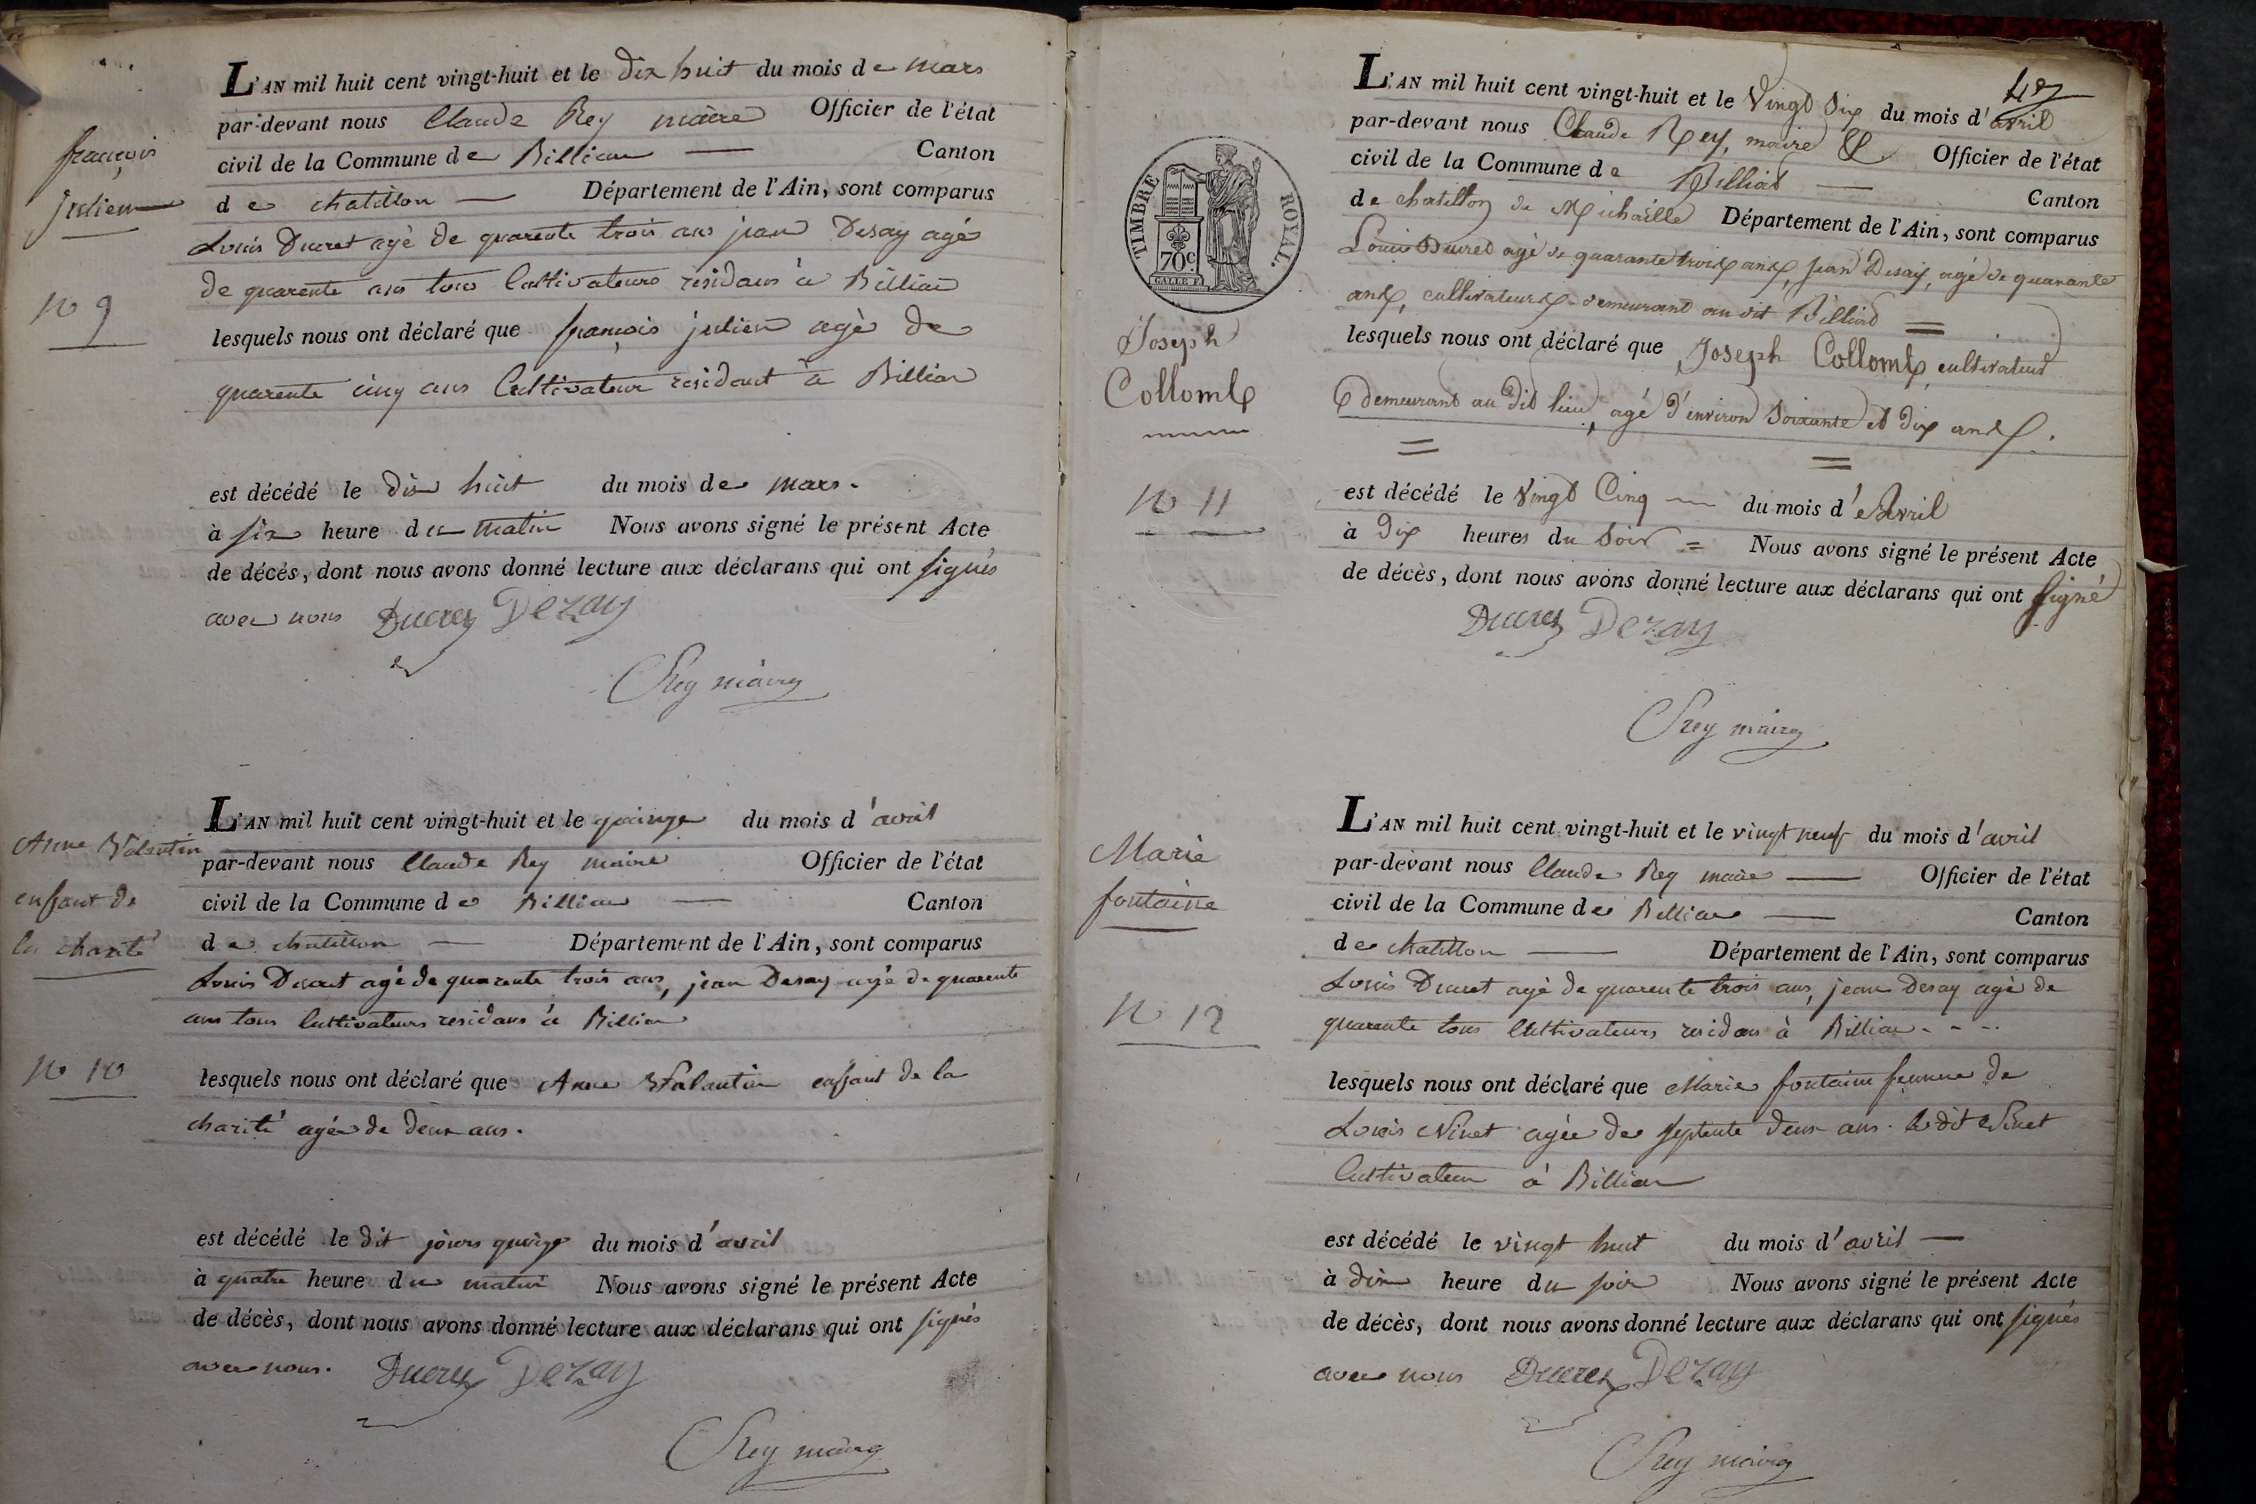 françois
julien
n° 9
L'AN mil huit cent vingt-huit et le dix huit du mois de mars
par-devant nous Claude Rey maire Officier de l'état
civil de la Commune de Billiau — Canton
de chatillon — Département de l'Ain, sont comparus
Louis Ducret agé de quarente trois ans jean Desay agé
de quarente ans tous Cultivateurs residans à Billiau
lesquels nous ont déclaré que françois julien agé de
quarente cinq ans Cultivateur residant à Billiau
est décédé le dix huit du mois de mars.
à six heure du matin Nous avons signé le présent Acte
de décès, dont nous avons donné lecture aux déclarans qui ont signés
avec nous Ducret Dezay
Rey maire
Anne Valantin
enfant de
la charité
n° 10
L'AN mil huit cent vingt-huit et le quinze du mois d'avril
par-devant nous Claude Rey maire Officier de l'état
civil de la Commune de Billiau — Canton
de chatillon — Département de l'Ain, sont comparus
Louis Ducret agé de quarente trois ans, jean Desay agé de quarente
ans tous Cultivateurs residans à Billiau
lesquels nous ont déclaré que Anne Valantin enfant de la
charité agée de deux ans.
est décédé le dit jours quinze du mois d'avril
à quatre heure du matin Nous avons signé le présent Acte
de décès, dont nous avons donné lecture aux déclarans qui ont signés
avec nous. Ducret Dezay
Rey maire
TIMBRE ROYAL.
70c.
Joseph
Collomb
n° 11
L'AN mil huit cent vingt-huit et le Vingt Six du mois d'avril
par-devant nous Claude Rey, maire Officier de l'état
civil de la Commune de Billiat — Canton
de chatillon de Michaille Département de l'Ain, sont comparus
Louis Ducret agé de quarante trois ans, jean Desay, agé de quarante
ans, cultivateurs demeurant au dit Billiat =
lesquels nous ont déclaré que Joseph Collomb, cultivateur
demeurant au dit lieu, agé d'environ soixante et dix ans.
est décédé le vingt Cinq — du mois d'Avril
à Dix heures du Soir = Nous avons signé le présent Acte
de décès, dont nous avons donné lecture aux déclarans qui ont signé
Ducret Dezay
Rey maire
Marie
fontaine
n° 12
L'AN mil huit cent vingt-huit et le vingt neuf du mois d'avril
par-devant nous Claude Rey maire — Officier de l'état
civil de la Commune de Billiau — Canton
de chatillon — Département de l'Ain, sont comparus
Louis Ducret agé de quarente trois ans, jean Desay agé de
quarente tous Cultivateurs residans à Billiau - - -
lesquels nous ont déclaré que Marie fontaine femme de
Louis Ninet agée de septente deux ans. le dit Ninet
Cultivateur à Billiau
est décédé le vingt huit du mois d'avril —
à dix heure du soir Nous avons signé le présent Acte
de décès, dont nous avons donné lecture aux déclarans qui ont signés
avec nous Ducret Dezay
Rey maire